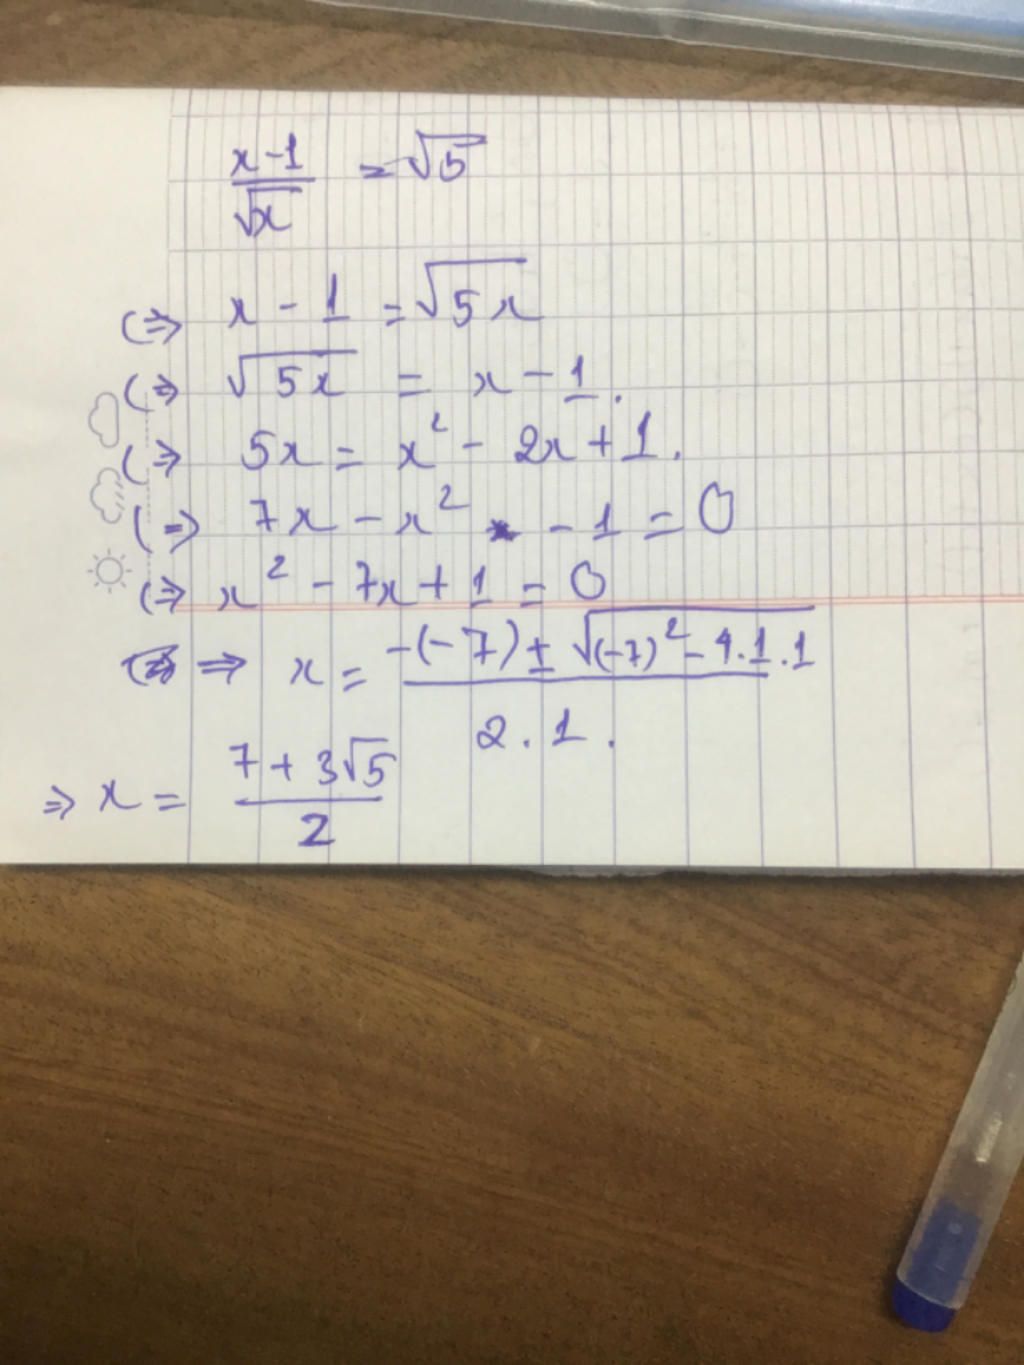 x-1/√x = √5
(=> x - 1 = √5x
(=> √5x = x - 1.
(=> 5x = x² - 2x + 1.
(=> 7x - x² - 1 = 0
(=> x² - 7x + 1 = 0
=> x = -(-7) ± √(-7)² - 4.1.1 / 2.1.
=> x = 7 + 3√5 / 2